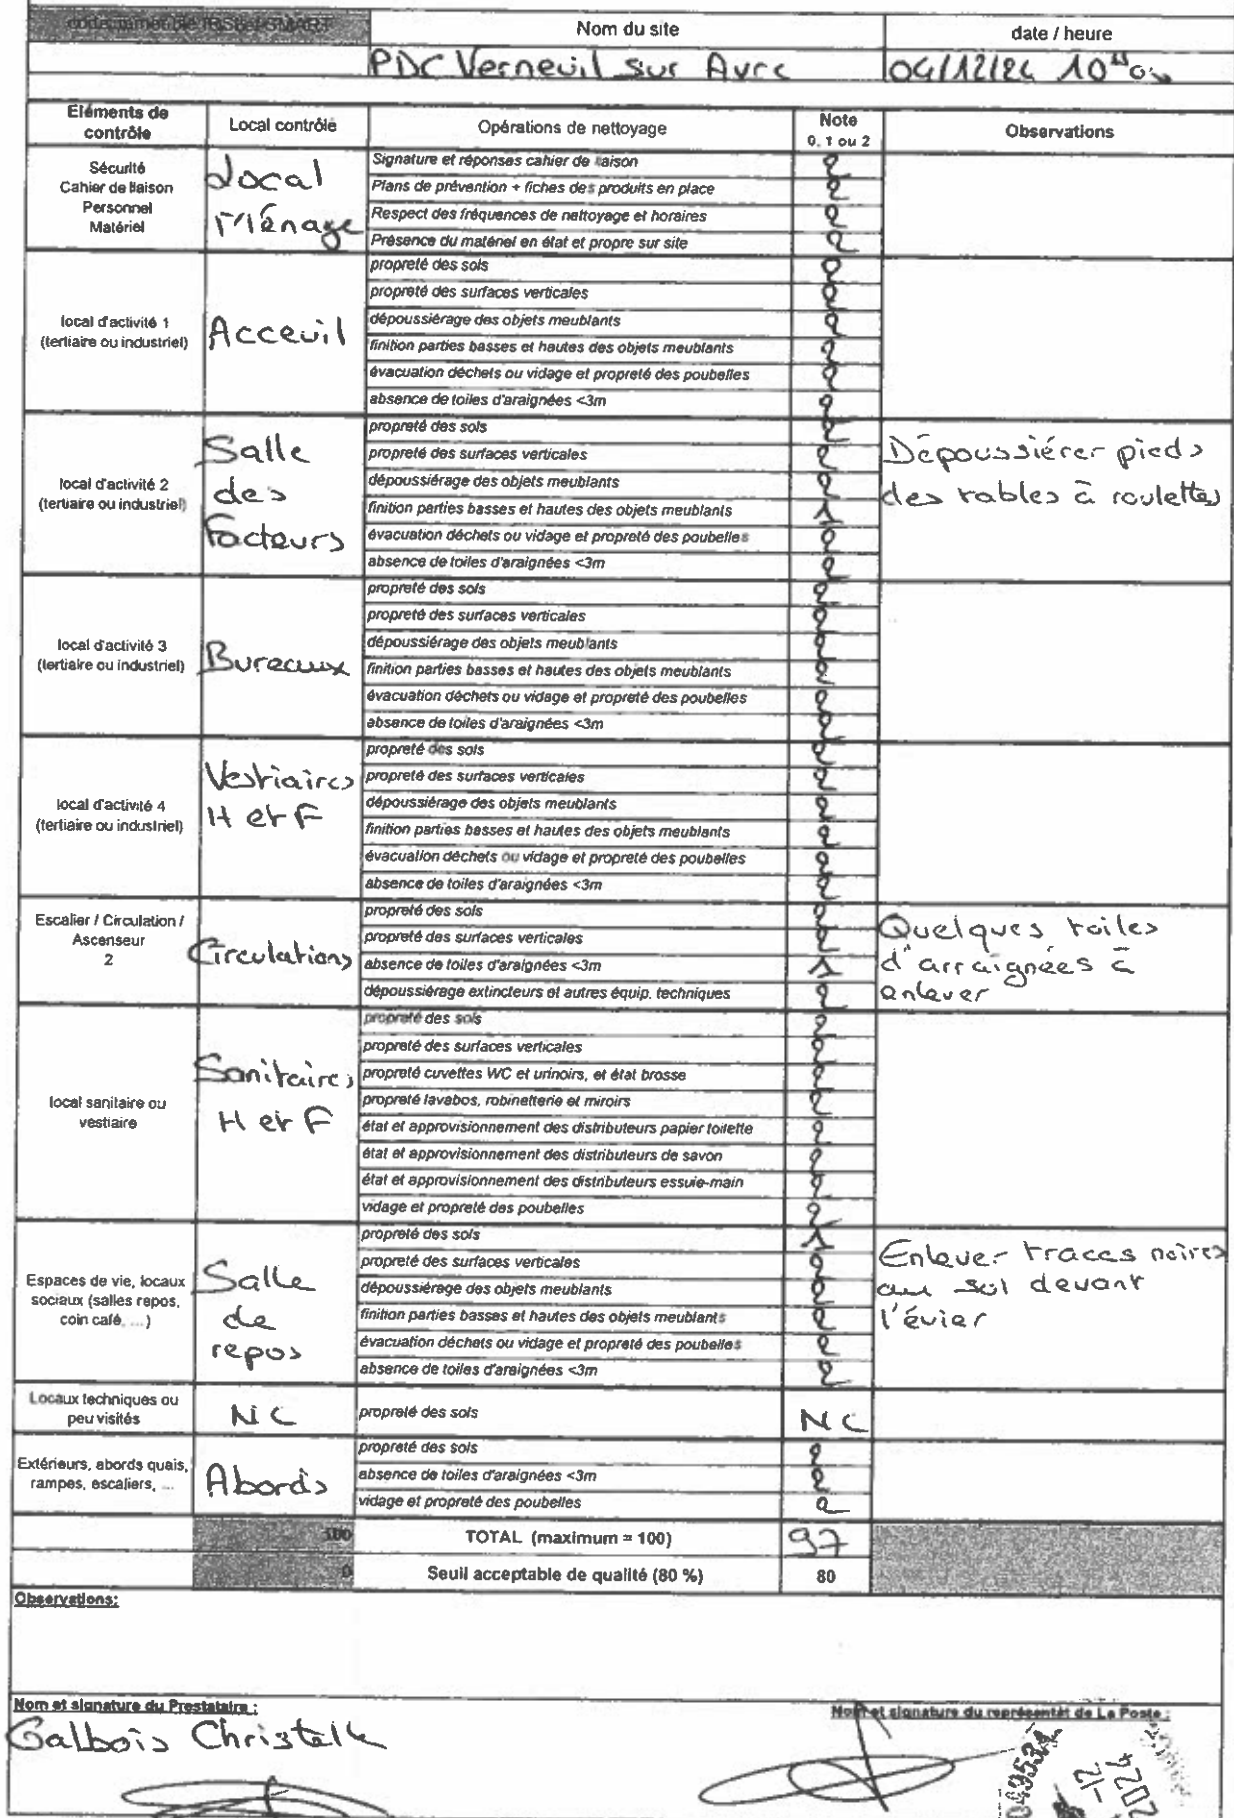 code immeuble
Nom du site
date / heure
PDC Verneuil sur Avre
04/12/24 10H
Eléments de contrôle
Local contrôlé
Opérations de nettoyage
Note 0, 1 ou 2
Observations
Sécurité
Cahier de liaison
Personnel
Matériel
Local
Ménage
Signature et réponses cahier de liaison 2
Plans de prévention + fiches des produits en place 2
Respect des fréquences de nettoyage et horaires 2
Présence du matériel en état et propre sur site 2
local d'activité 1
(tertiaire ou industriel)
Acceuil
propreté des sols 2
propreté des surfaces verticales 2
dépoussiérage des objets meublants 2
finition parties basses et hautes des objets meublants 2
évacuation déchets ou vidage et propreté des poubelles 2
absence de toiles d'araignées <3m 2
local d'activité 2
(tertiaire ou industriel)
Salle
des
Facteurs
propreté des sols 2
propreté des surfaces verticales 2
dépoussiérage des objets meublants 2
finition parties basses et hautes des objets meublants 1
évacuation déchets ou vidage et propreté des poubelles 2
absence de toiles d'araignées <3m 2
Dépoussiérer pieds
des tables à roulettes
local d'activité 3
(tertiaire ou industriel)
Bureaux
propreté des sols 2
propreté des surfaces verticales 2
dépoussiérage des objets meublants 2
finition parties basses et hautes des objets meublants 2
évacuation déchets ou vidage et propreté des poubelles 2
absence de toiles d'araignées <3m 2
local d'activité 4
(tertiaire ou industriel)
Vestiaires
H et F
propreté des sols 2
propreté des surfaces verticales 2
dépoussiérage des objets meublants 2
finition parties basses et hautes des objets meublants 2
évacuation déchets ou vidage et propreté des poubelles 2
absence de toiles d'araignées <3m 2
Escalier / Circulation /
Ascenseur
2
Circulations
propreté des sols 2
propreté des surfaces verticales 2
absence de toiles d'araignées <3m 1
dépoussiérage extincteurs et autres équip. techniques 2
Quelques toiles
d'arraignées à
enlever
local sanitaire ou
vestiaire
Sanitaires
H et F
propreté des sols 2
propreté des surfaces verticales 2
propreté cuvettes WC et urinoirs, et état brosse 2
propreté lavabos, robinetterie et miroirs 2
état et approvisionnement des distributeurs papier toilette 2
état et approvisionnement des distributeurs de savon 2
état et approvisionnement des distributeurs essuie-main 2
vidage et propreté des poubelles 2
Espaces de vie, locaux
sociaux (salles repos,
coin café, ...)
Salle
de
repos
propreté des sols 1
propreté des surfaces verticales 2
dépoussiérage des objets meublants 2
finition parties basses et hautes des objets meublants 2
évacuation déchets ou vidage et propreté des poubelles 2
absence de toiles d'araignées <3m 2
Enlever traces noires
au sol devant
l'évier
Locaux techniques ou
peu visités
NC
propreté des sols NC
Extérieurs, abords quais,
rampes, escaliers, ...
Abords
propreté des sols 2
absence de toiles d'araignées <3m 2
vidage et propreté des poubelles 2
100
TOTAL (maximum = 100) 97
0
Seuil acceptable de qualité (80 %) 80
Observations:
Nom et signature du Prestataire :
Galbois Christelle
Nom et signature du représentant de La Poste :